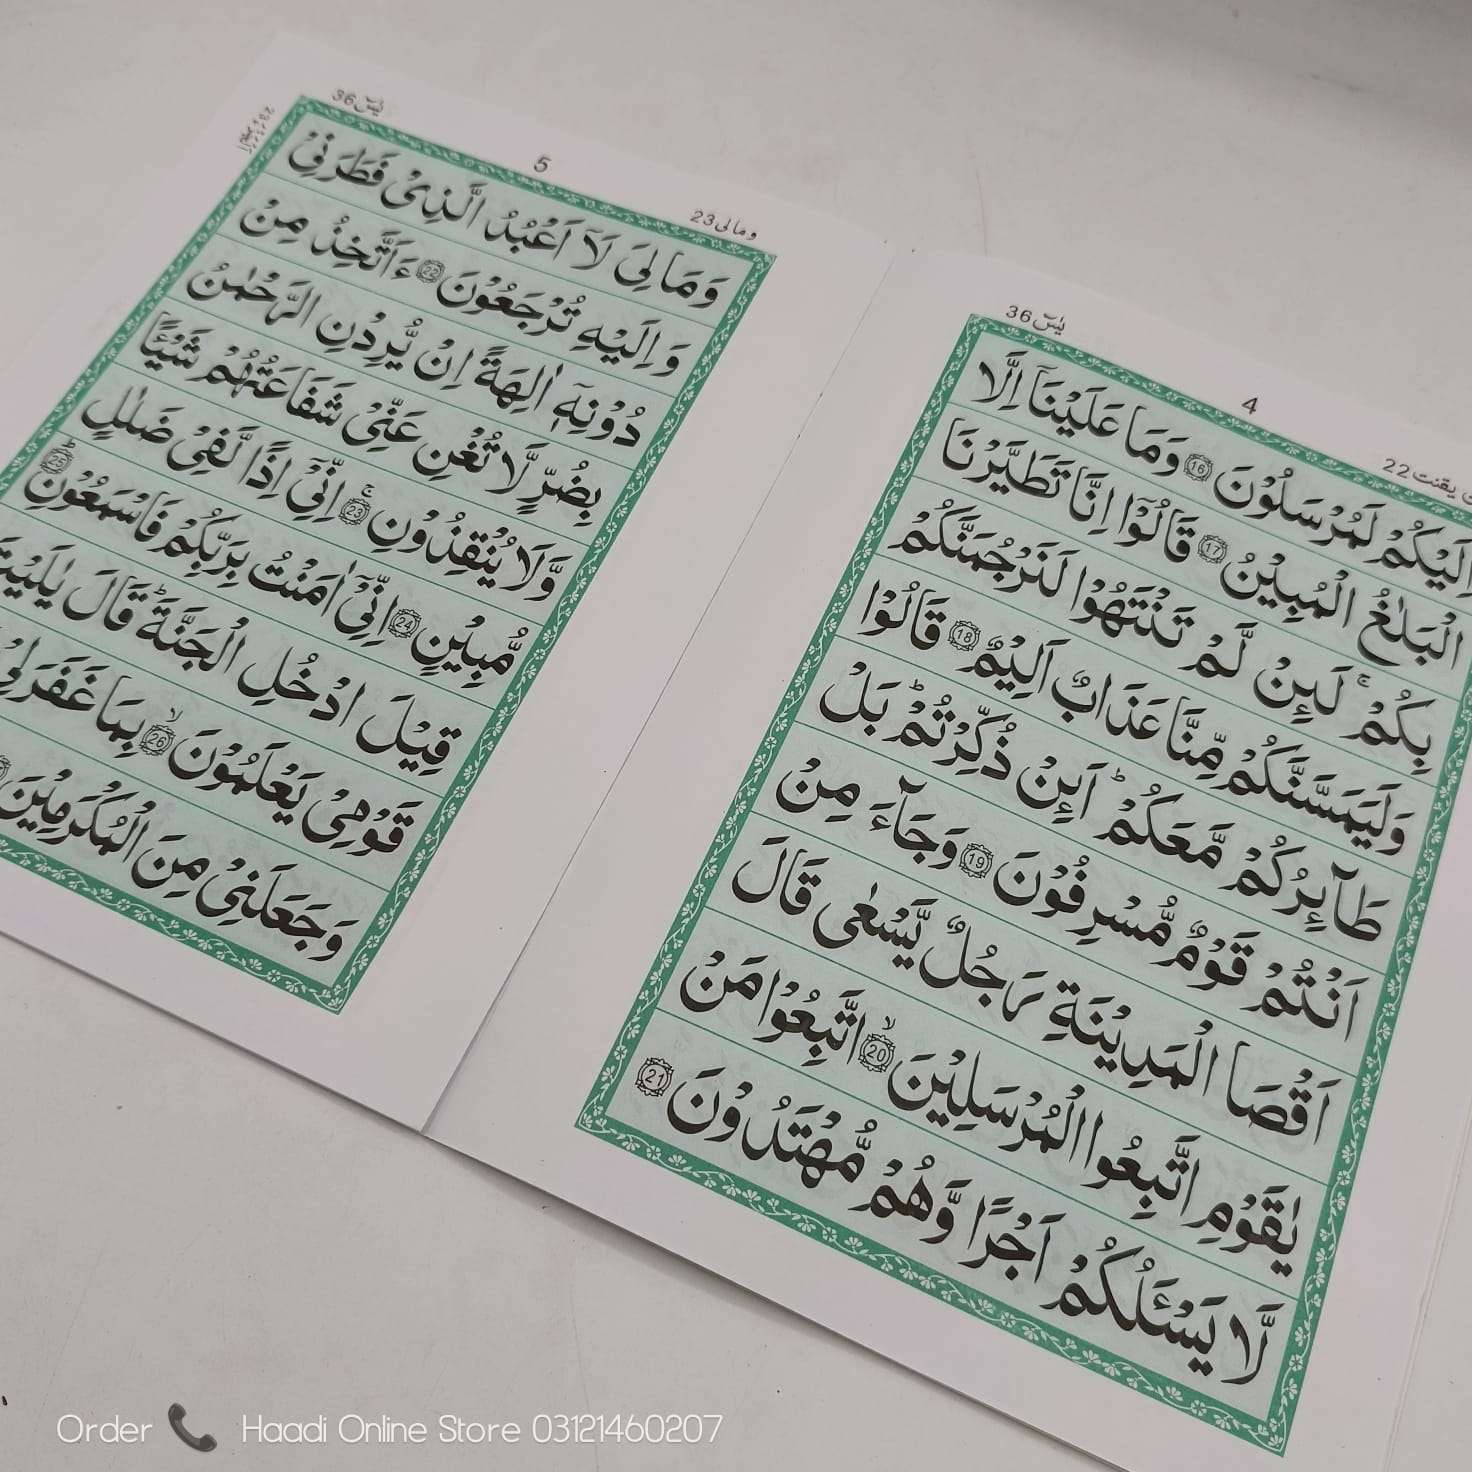 یٰسٓ 36
4
22
اِلَیْكُمْ لَمُرْسَلُوْنَ 16 وَمَا عَلَیْنَاۤ اِلَّا
الْبَلٰغُ الْمُبِیْنُ 17 قَالُوْۤا اِنَّا تَطَیَّرْنَا
بِكُمْ ۚ لَىِٕنْ لَّمْ تَنْتَهُوْا لَنَرْجُمَنَّكُمْ
وَلَیَمَسَّنَّكُمْ مِّنَّا عَذَابٌ اَلِیْمٌ 18 قَالُوْا
طَآىِٕرُكُمْ مَّعَكُمْ ؕ اَىِٕنْ ذُكِّرْتُمْ ؕ بَلْ
اَنْتُمْ قَوْمٌ مُّسْرِفُوْنَ 19 وَجَآءَ مِنْ
اَقْصَا الْمَدِیْنَةِ رَجُلٌ یَّسْعٰی قَالَ
یٰقَوْمِ اتَّبِعُوا الْمُرْسَلِیْنَ ۙ 20 اتَّبِعُوْا مَنْ
لَّا یَسْـَٔلُكُمْ اَجْرًا وَّهُمْ مُّهْتَدُوْنَ 21
یٰسٓ 36
5
ومالی 23
وَمَا لِیَ لَاۤ اَعْبُدُ الَّذِیْ فَطَرَنِیْ
وَاِلَیْهِ تُرْجَعُوْنَ 22 ءَاَتَّخِذُ مِنْ
دُوْنِهٖۤ اٰلِهَةً اِنْ یُّرِدْنِ الرَّحْمٰنُ
بِضُرٍّ لَّا تُغْنِ عَنِّیْ شَفَاعَتُهُمْ شَیْـًٔا
وَّلَا یُنْقِذُوْنِ ۚ 23 اِنِّیْۤ اِذًا لَّفِیْ ضَلٰلٍ
مُّبِیْنٍ 24 اِنِّیْۤ اٰمَنْتُ بِرَبِّكُمْ فَاسْمَعُوْنِ ؕ 25
قِیْلَ ادْخُلِ الْجَنَّةَ ؕ قَالَ یٰلَیْتَ
قَوْمِیْ یَعْلَمُوْنَ ۙ 26 بِمَا غَفَرَ لِیْ
وَجَعَلَنِیْ مِنَ الْمُكْرَمِیْنَ
Order Haadi Online Store 03121460207